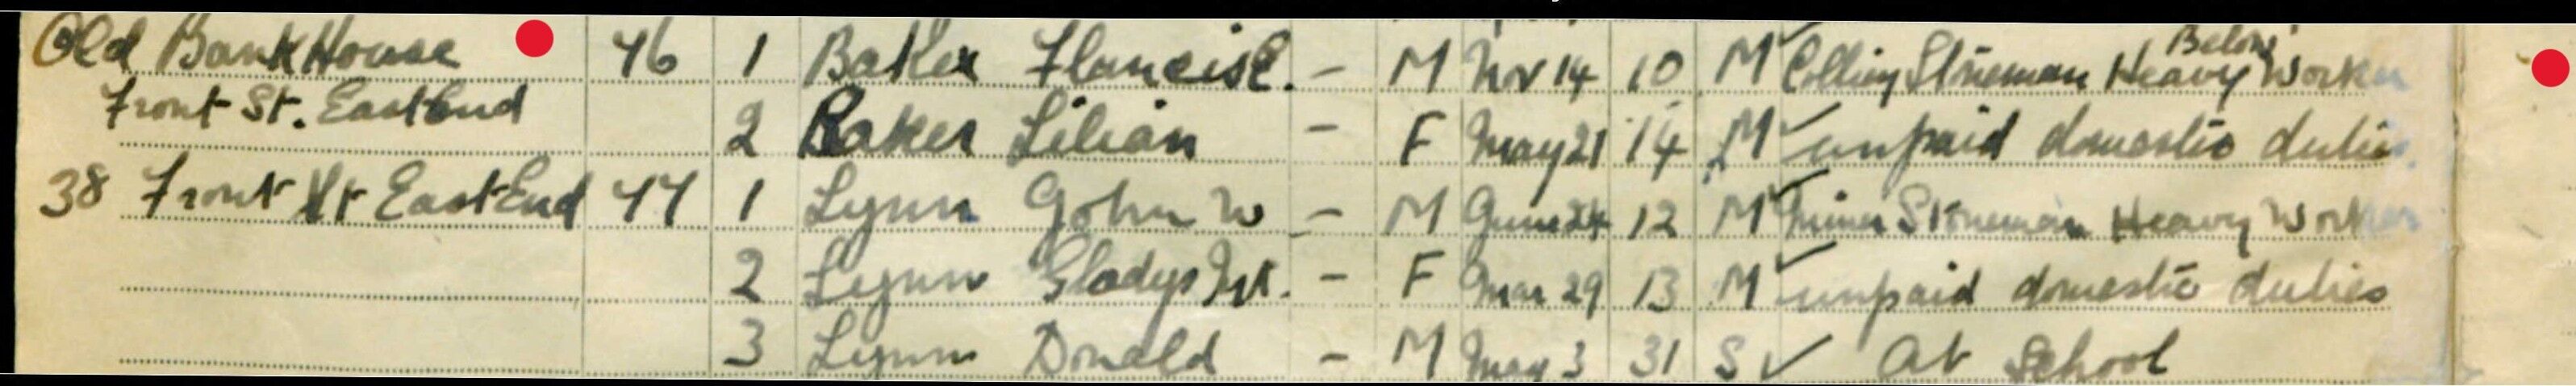 Old Bank House 46 1 Baker Francis C. - M Nov 14 10 M Colliery Stoneman Below Heavy Worker
Front St. East End 2 Baker Lilian - F May 21 14 M unpaid domestic duties
38 Front St East End 47 1 Lynn John W - M June 24 12 M Miner Stoneman Heavy Worker
2 Lynn Gladys M. - F Mar 29 13 M unpaid domestic duties
3 Lynn Donald - M May 3 31 S ✓ At School